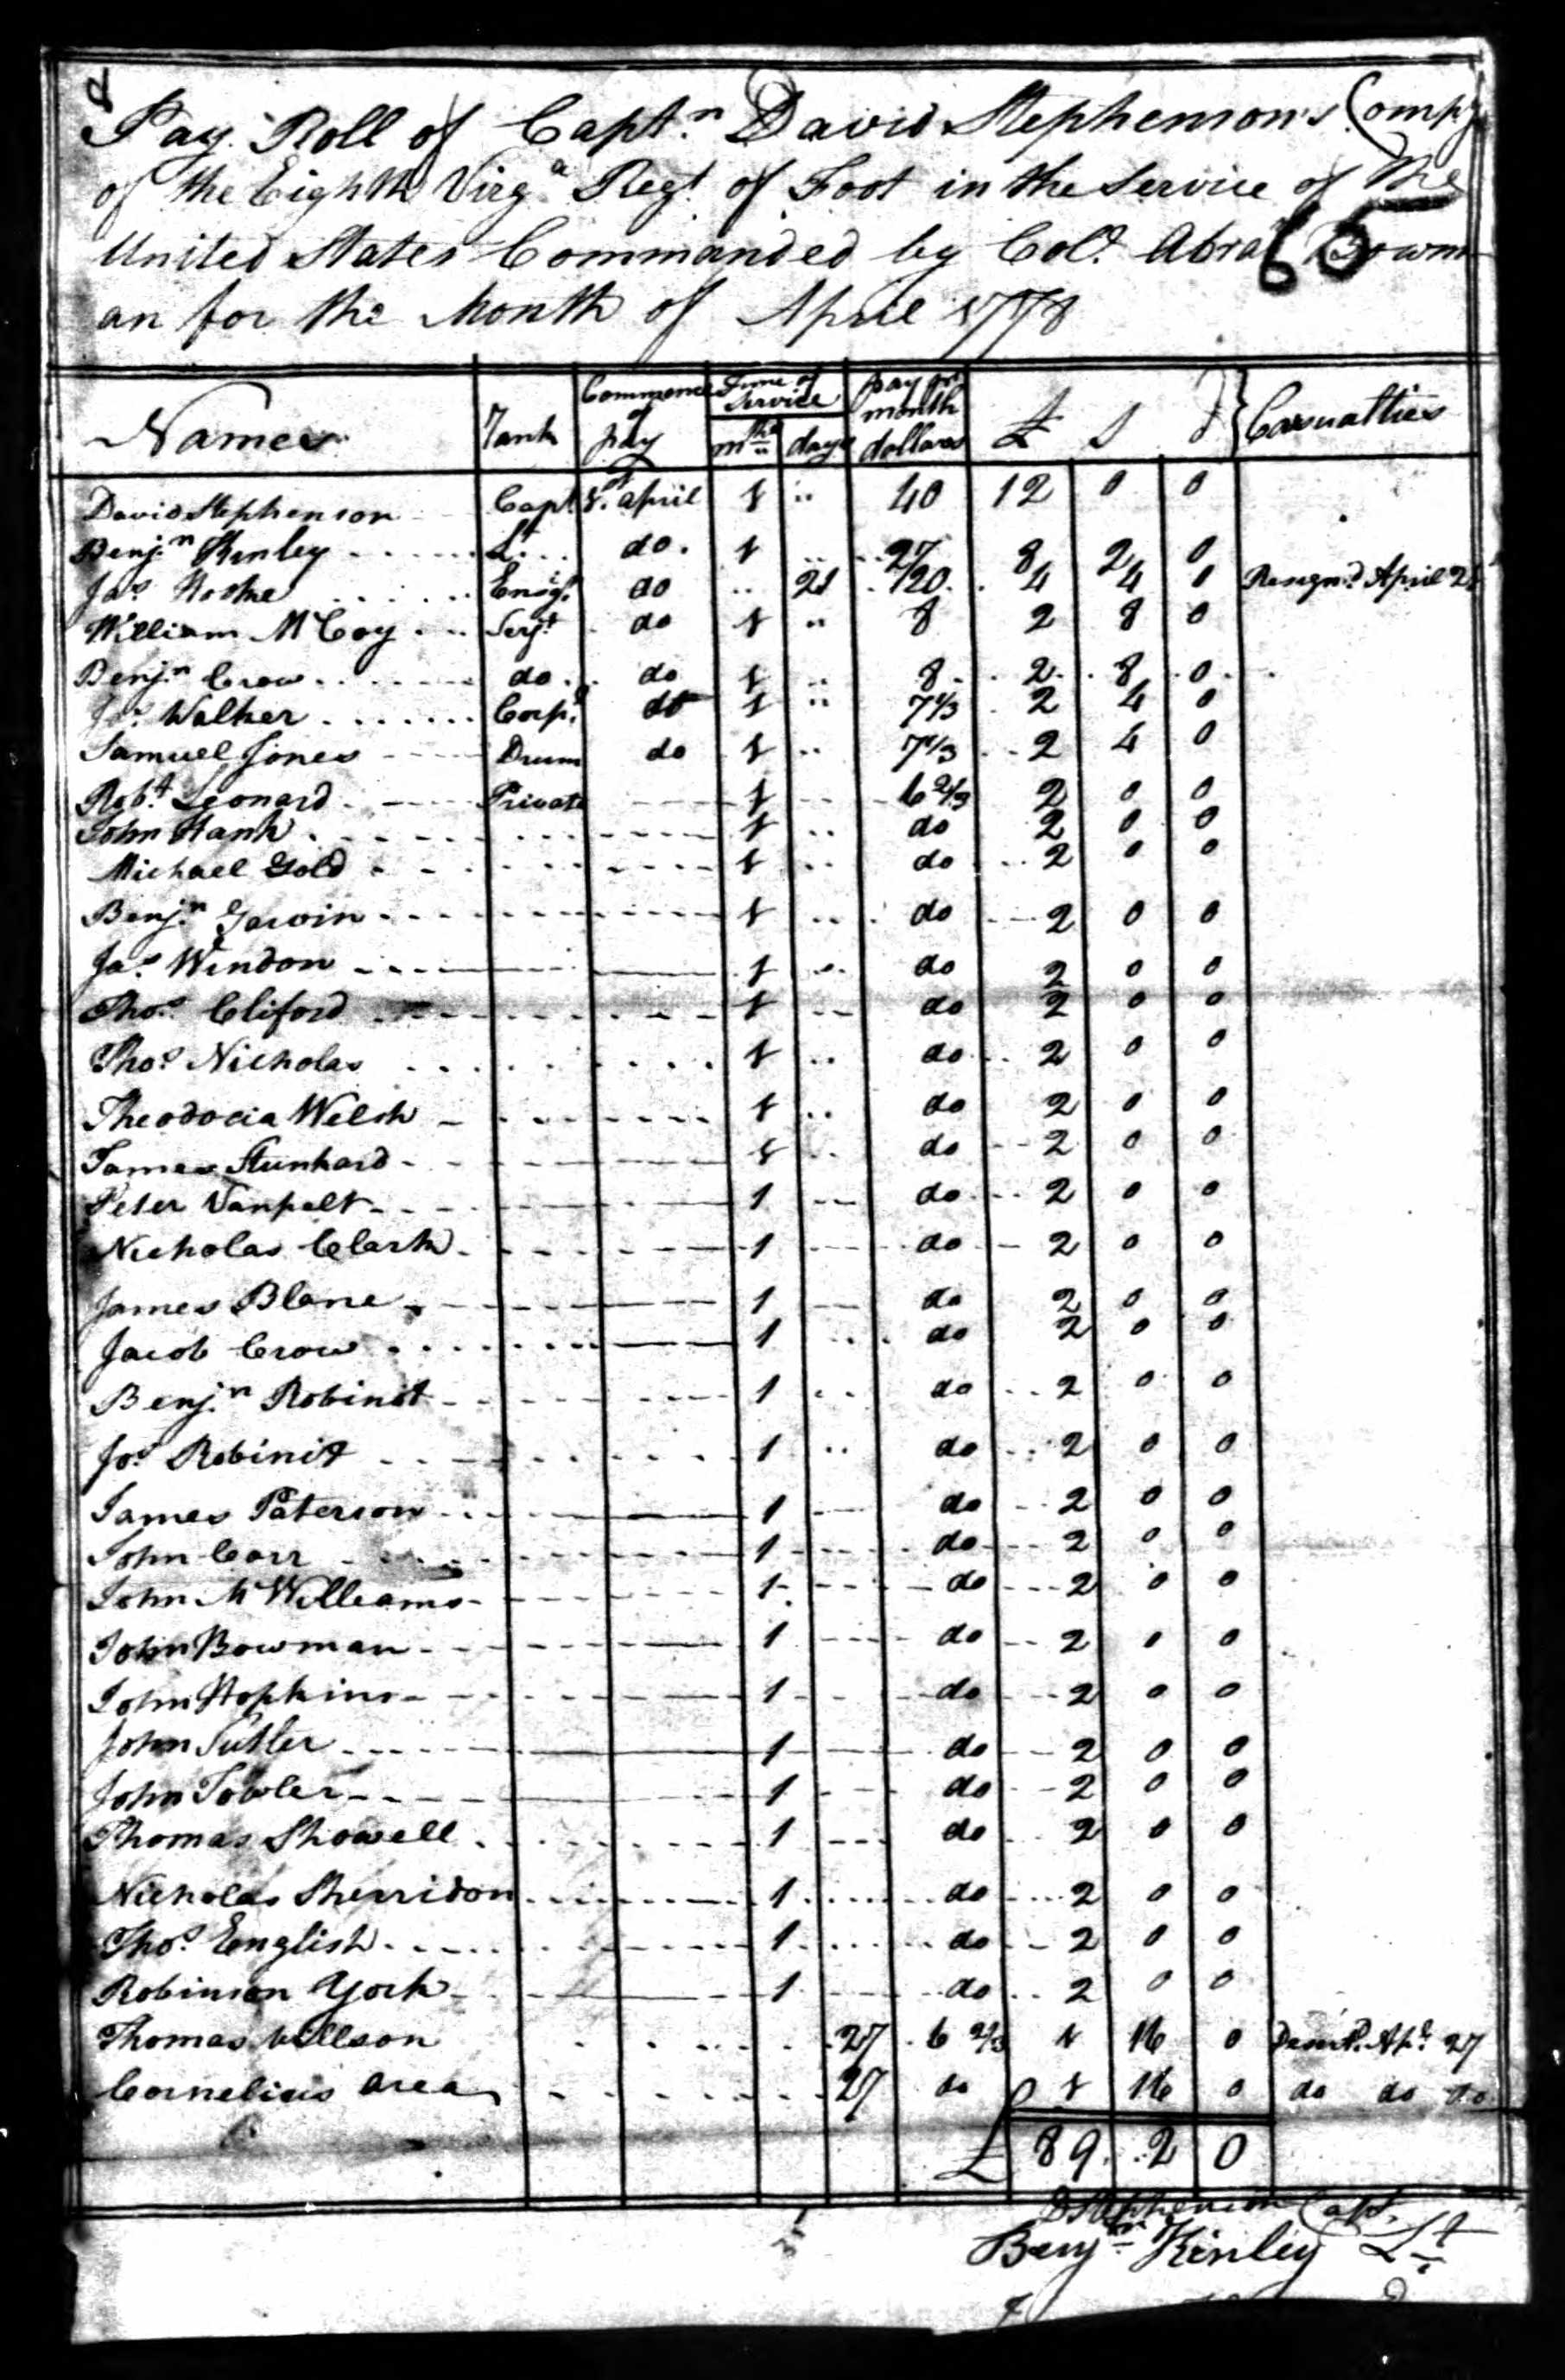 Pay Roll of Capt.n David Stephenson's Compy
of the Eighth Virga Regt. of Foot in the Service of the
United States Commanded by Col.o Abra.m Bowm
65
an for the Month of April 1778
Names Rank Commence of pay Time of Service mths days pay pr month dollars £ S d Casualties
David Stephenson Capt 1st april 1 " 40 12 0 0
Benj.n Kinley Lt. do. 1 .. 27 8 2 0
Jas. Ensig.n do .. 21 20 4 4 0 Resign.d April 21
William McCoy Serjt. do 1 " 8 2 8 0
Benj.n Crow do. do 1 .. 8 2 8 0
Jos. Walker Corp.l do 1 " 7 1/3 2 4 0
Samuel Jones Drum do 1 .. 7 1/3 2 4 0
Rob.t Leonard Private 1 .. 6 2/3 2 0 0
John Hank 1 .. do 2 0 0
Michael Gold 1 .. do 2 0 0
Benj.n Garvin 1 .. do 2 0 0
Jas. Windon 1 .. do 2 0 0
Thos. Cliford 1 -- do 2 0 0
Thos. Nicholas 1 .. do 2 0 0
Theodocia Welsh 1 .. do 2 0 0
James Stunhard 1 .. do 2 0 0
Peter Vanpelt 1 -- do 2 0 0
Nicholas Clark 1 do 2 0 0
James Blane 1 do 2 0 0
Jacob Crow 1 .. do 2 0 0
Benj.n Robinet 1 .. do 2 0 0
Jos. Robinit 1 .. do 2 0 0
James Paterson 1 do 2 0 0
John Carr 1 do 2 0 0
John McWilliams 1 do 2 0 0
John Bowman 1 do 2 0 0
John Hopkins 1 do 2 0 0
John Sutler 1 do 2 0 0
John Fowler 1 do 2 0 0
Thomas Showell 1 do 2 0 0
Nicholas Sherridon 1 do 2 0 0
Thos. English 1 do 2 0 0
Robinson York 1 do 2 0 0
Thomas Willson 27 6 2/3 1 16 0 Desert.d Ap.l 27
Cornelius Area 27 do 1 16 0 do do do
£ 89 2 0
D Stephenson Capt.
Benjn Kinley Lt